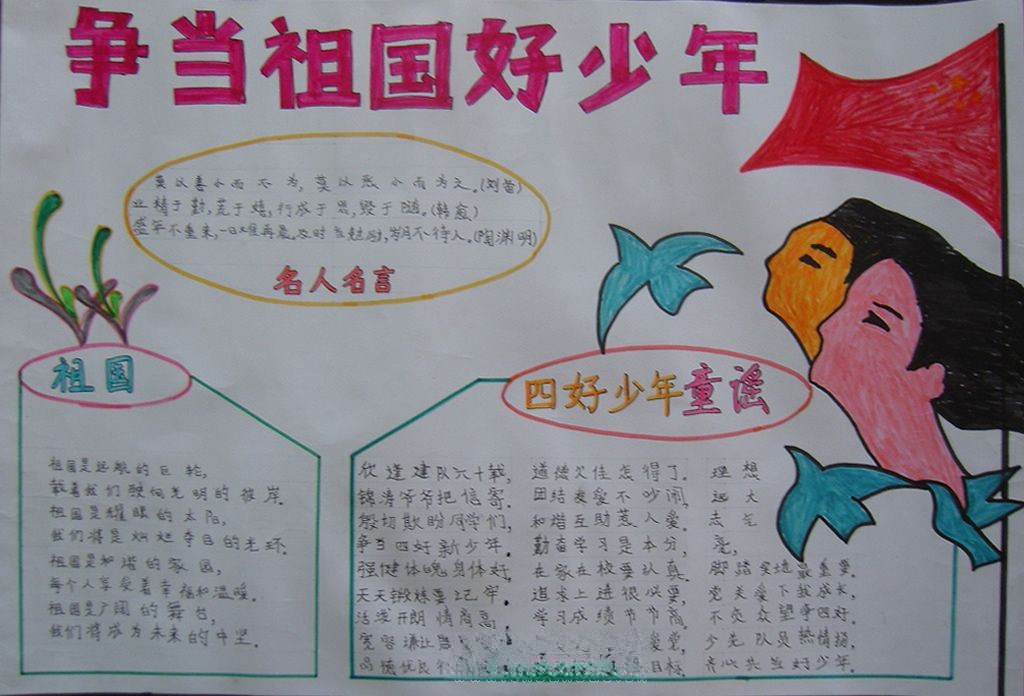 争当祖国好少年
莫以善小而不为,莫以恶小而为之。(刘备)
业精于勤,荒于嬉,行成于思,毁于随。(韩愈)
盛年不重来,一日难再晨。及时当勉励,岁月不待人。(陶渊明)
名人名言
祖国
祖国是远航的巨轮,
载着我们驶向光明的彼岸.
祖国是耀眼的太阳,
我们将是灿烂夺目的光环.
祖国是和谐的家园,
每个人享受着幸福和温暖.
祖国是广阔的舞台,
我们将成为未来的中坚.
四好少年童谣
欣逢建队六十载,
锦涛爷爷把信寄.
殷切期盼同学们,
争当四好新少年.
强健体魄身体好,
天天锻炼要记牢.
活泼开朗情商高,
宽容谦让
品德优良
道德欠佳怎得了.
团结友爱不吵闹,
和谐互助惹人爱.
勤奋学习是本分,
在家在校要认真.
追求上进很必要,
学习成绩节节高.
爱党,
目标.
理想
远大
志气
高,
脚踏实地最重要.
党关爱下我成长,
不负众望争四好.
少先队员热情扬,
齐心共当好少年.